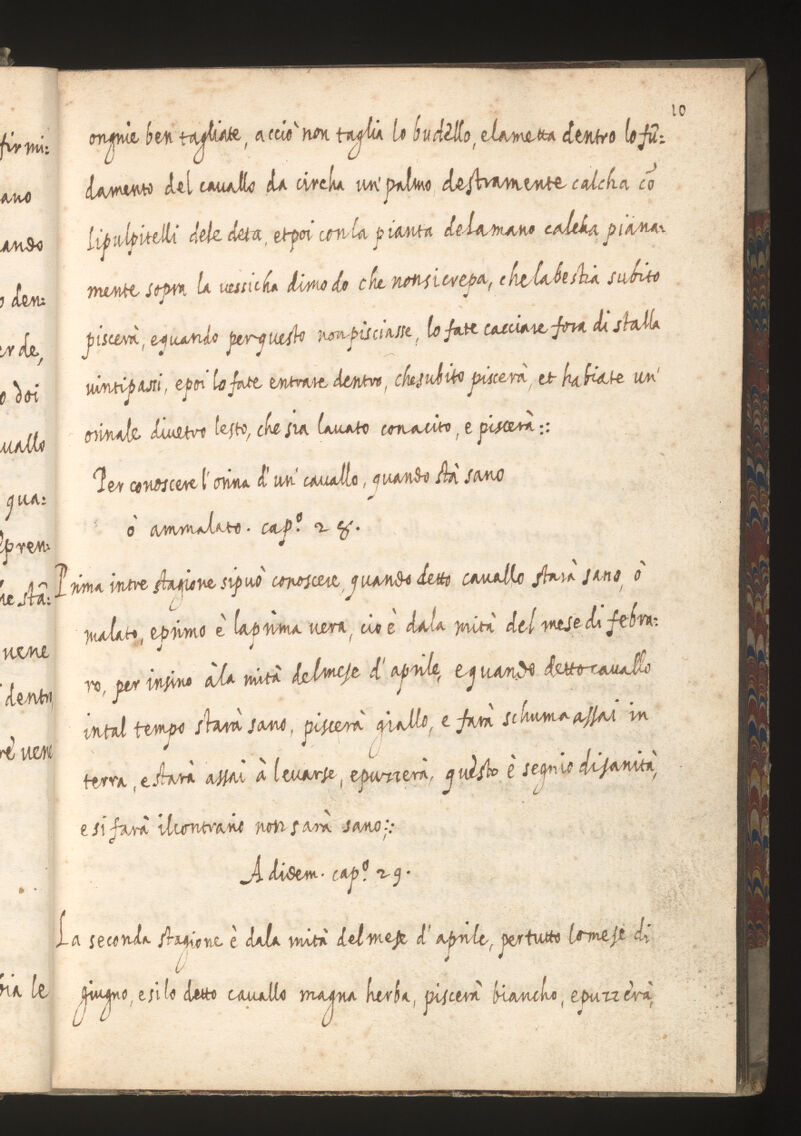 10
ongnie ben tagliate, acciò non taglia lo budello, e la metta dentro lo fũ=
damento del cavallo da circha un' palmo, destramente calcha cõ
li pulpitelli dele deta, et poi con la pianta dela mano calcha piana=
mente sopra la vessicha di modo che non si crepa, che la bestia subito
piscerà, e quando per questo non pisciasse, lo fate cacciare fora di stalla
vinti passi, e poi lo fate entrare dentro, che subito piscerà, et habiate un'
orinale di vetro lesto, che sia lavato con acito, e piscerà::
Per conoscere l'orina d'un' cavallo, quando stà sano
ò ammalato. cap.º 28.
Prima in tre stagione si può conoscere, quando detto cavallo starà sano, ò
malato, e primo è la prima vera, cio è dala mità del mese di febra=
ro, per insino àla mità del mese d'aprile, e quando detto cavallo
in tal tempo starà sano, piscerà giallo, e farà schuma assai in
terra, e starà assai à levarse, e puzzerà, questo è segnio di sanità,
e si farà il contrario non sarà sano;:
Adidem. cap.º 29.
La seconda stagione è dala mità del mese d'aprile, per tutto lo mese di
giugno, e si lo detto cavallo magna herba, piscerà biancho, e puzzerà,
fir mi=
ano
ando
o den=
er de,
o doi
uallo
qua=
pren=
he stã=
uene
dentro
bia le